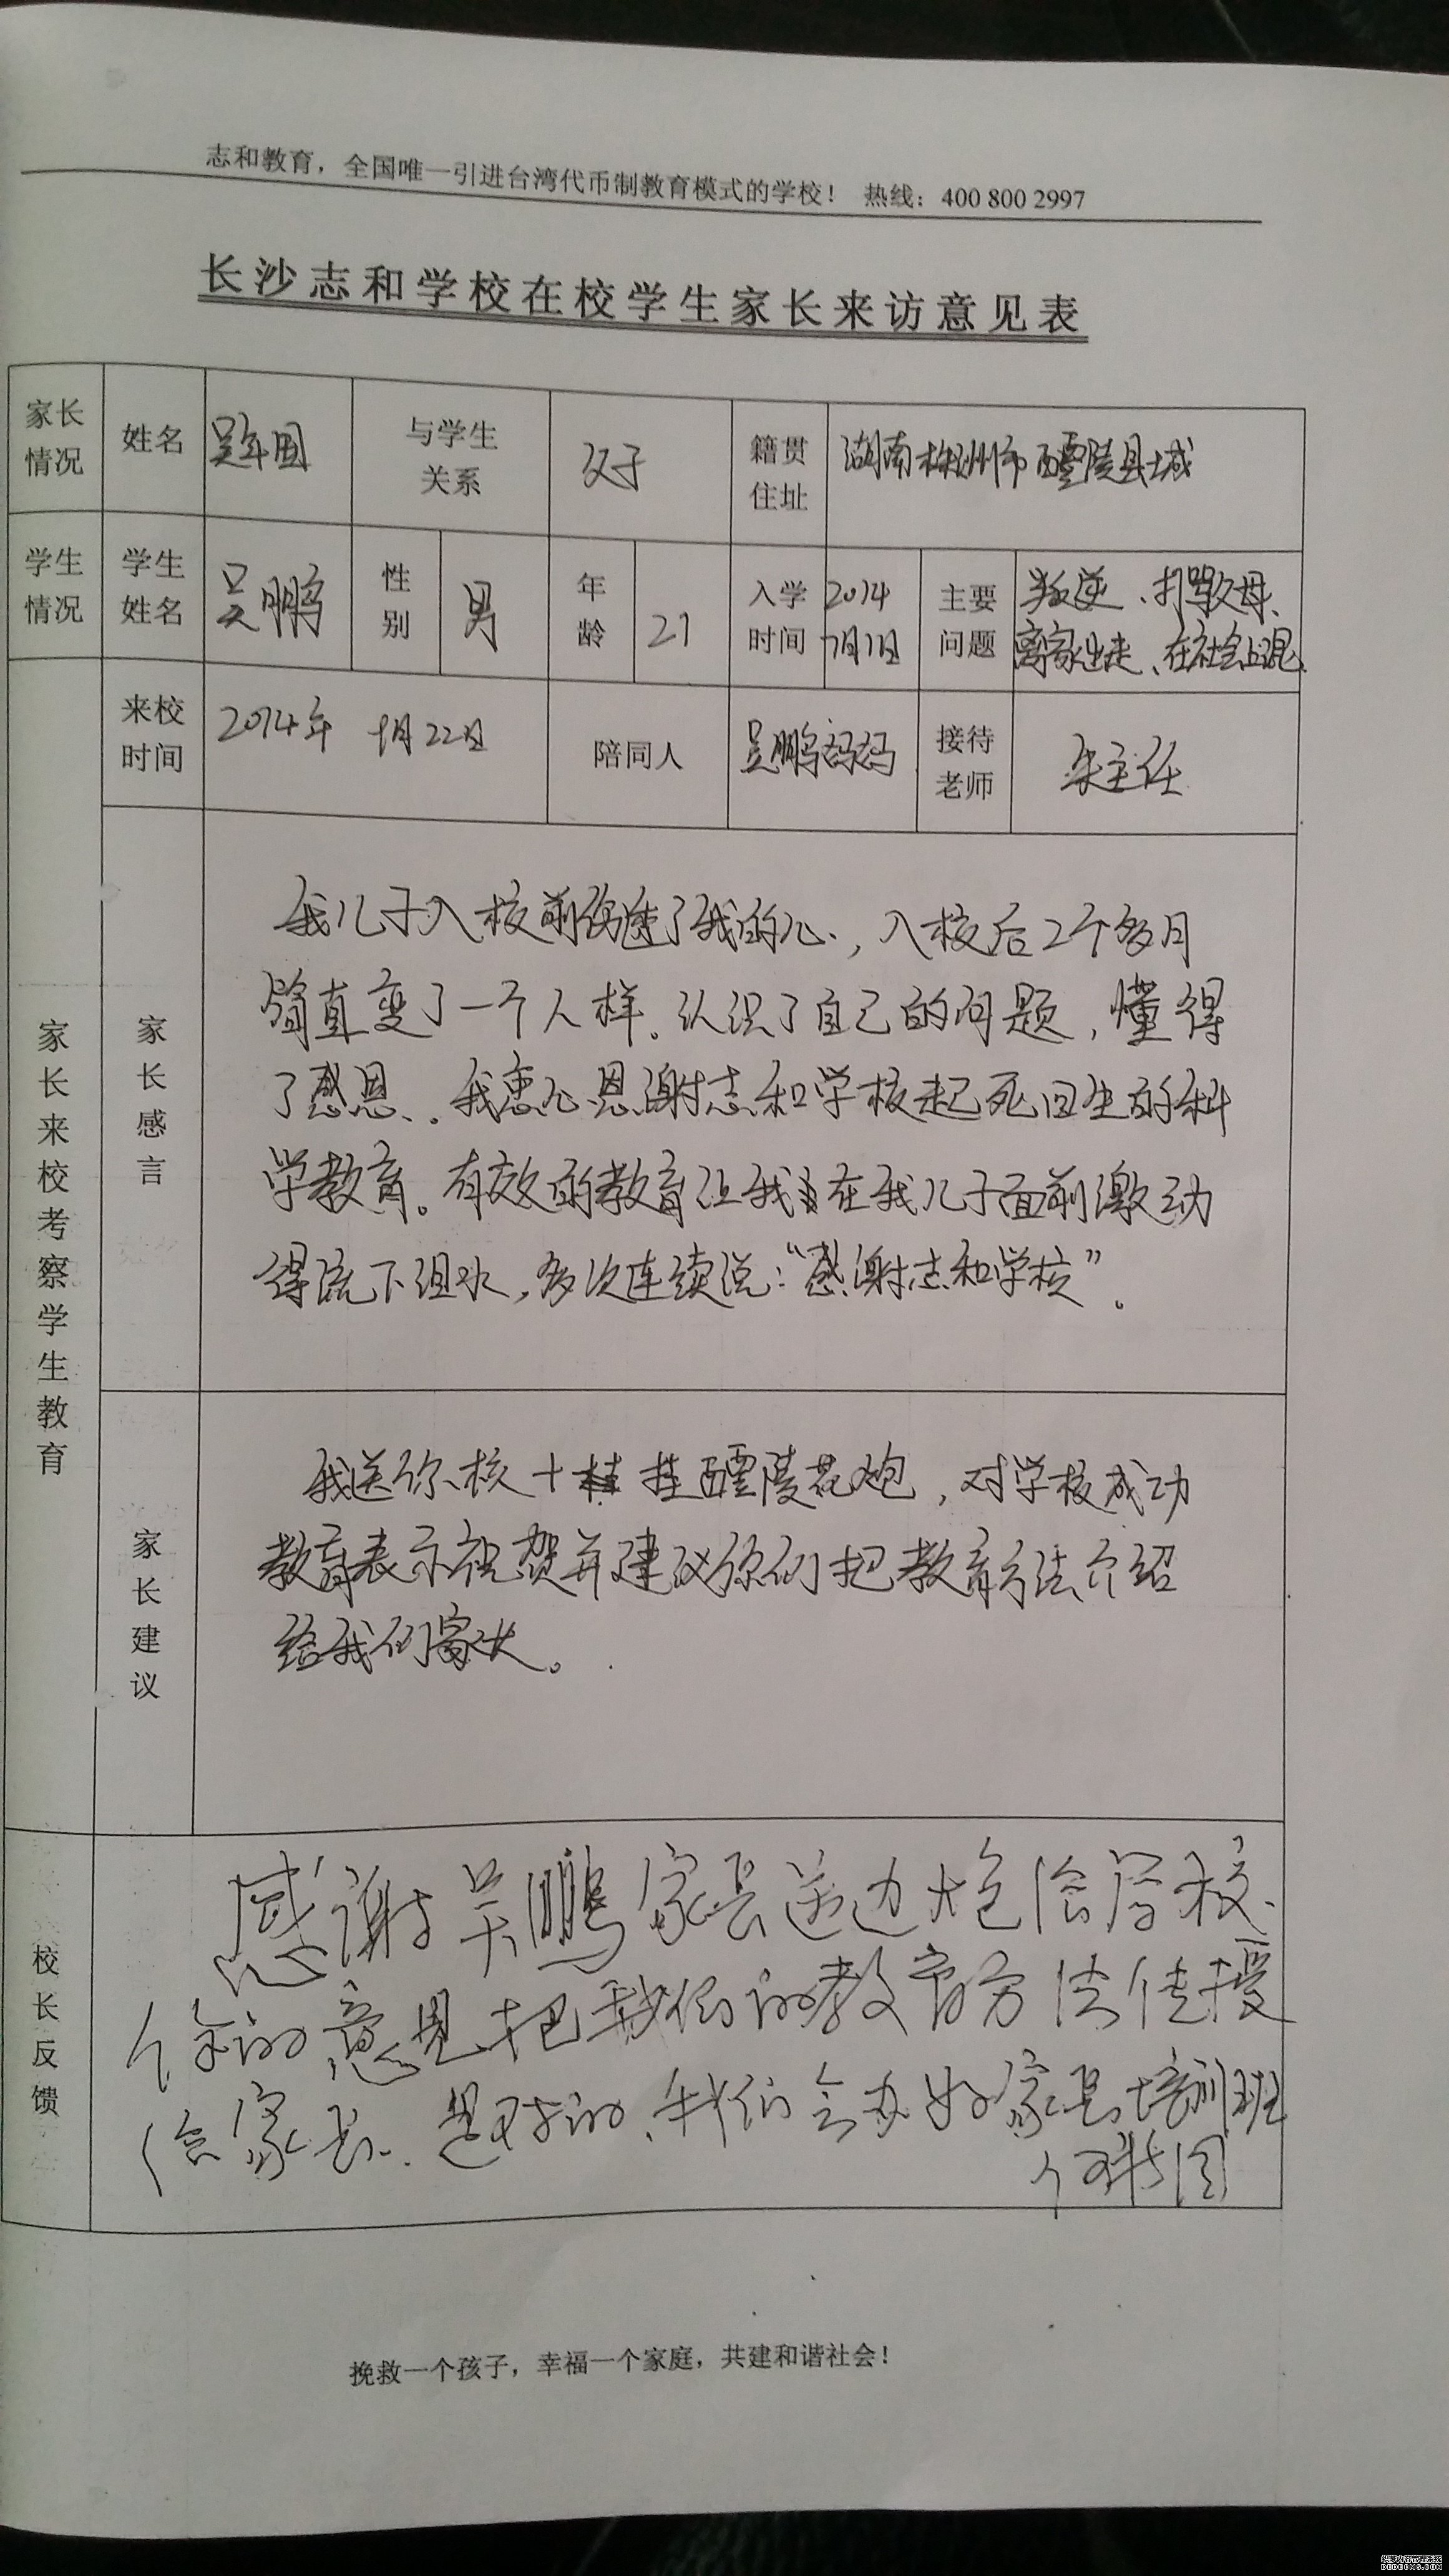 志和教育，全国唯一引进台湾代币制教育模式的学校！ 热线：400 800 2997
长沙志和学校在校学生家长来访意见表
家长情况 姓名 吴年国 与学生关系 父子 籍贯住址 湖南株洲市醴陵县城
学生情况 学生姓名 吴鹏 性别 男 年龄 21 入学时间 2014 7月1日 主要问题 叛逆、打骂父母、离家出走、在社会上混.
来校时间 2014年 9月22日 陪同人 吴鹏妈妈 接待老师 朱主任
家长来校考察学生教育
家长感言
我儿子入校前伤透了我的心，入校后2个多月
简直变了一个人样。认识了自己的问题，懂得
了感恩。我衷心恩谢志和学校起死回生的科
学教育。有效的教育让我在我儿子面前激动
得流下泪水，多次连续说：“感谢志和学校”。
家长建议
我送你校十挂醴陵花炮，对学校成功
教育表示祝贺并建议你们把教育方法介绍
给我们家长。
校长反馈
感谢吴鹏家长送边炮给学校、
你的意见把我们的教育方法传授
给家长.是对的、我们会办好家长培训班
挽救一个孩子，幸福一个家庭，共建和谐社会！
织梦内容管理系统
DEDECMS.COM